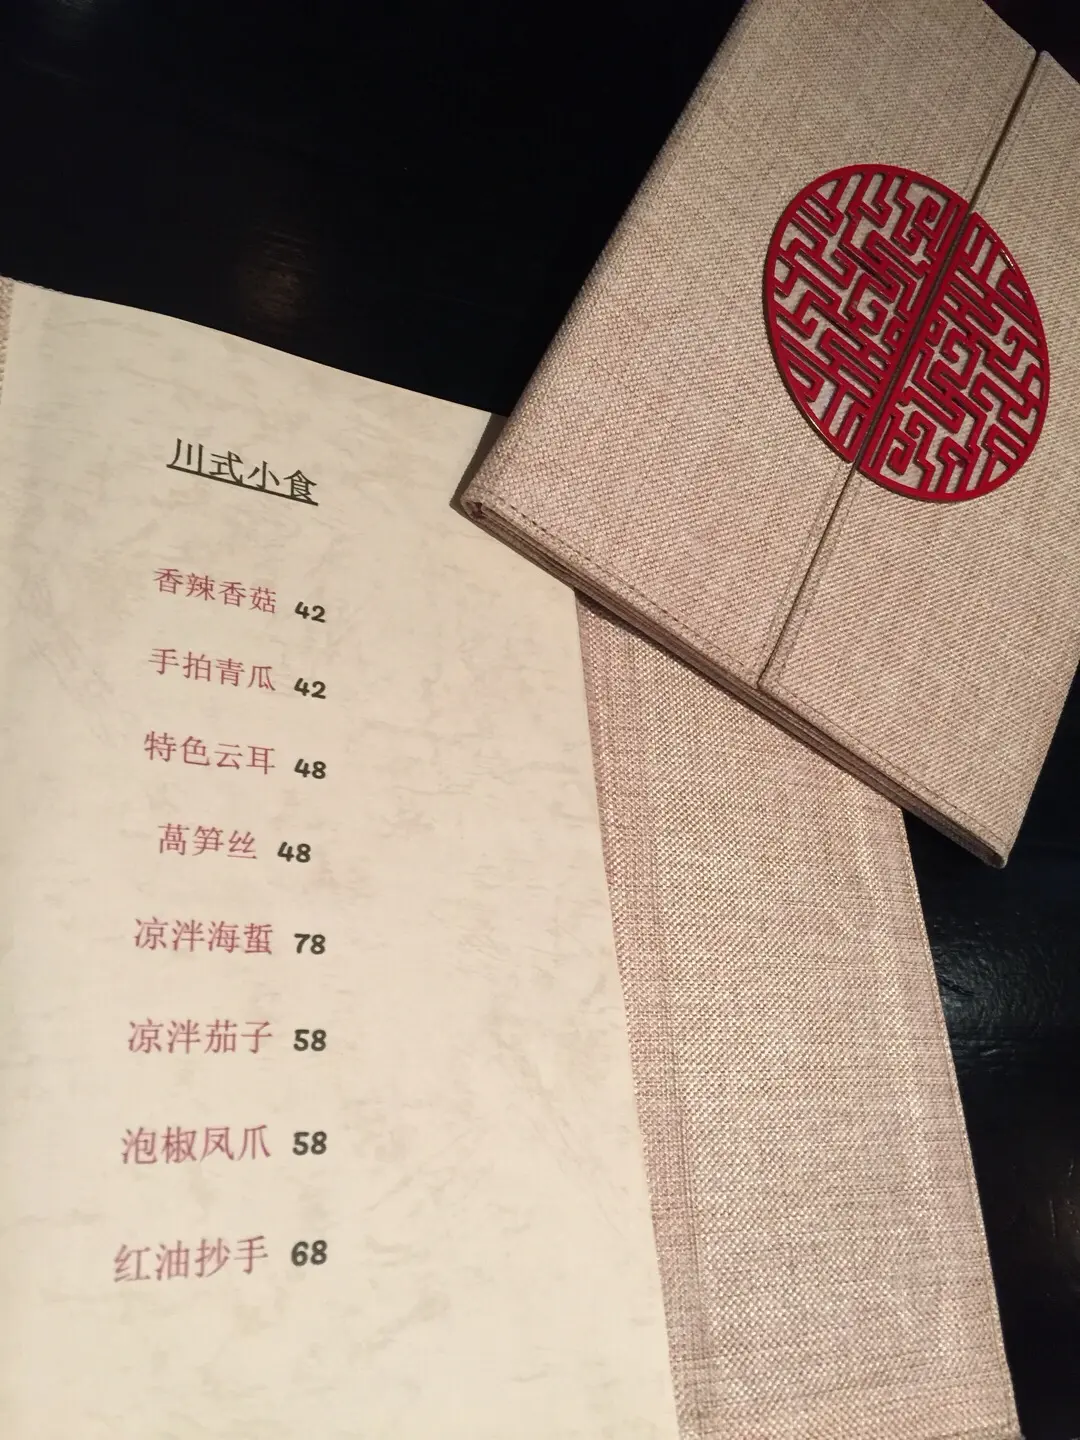 川式小食
香辣香菇 42
手拍青瓜 42
特色云耳 48
萵笋丝 48
凉泮海蜇 78
凉泮茄子 58
泡椒凤爪 58
红油抄手 68